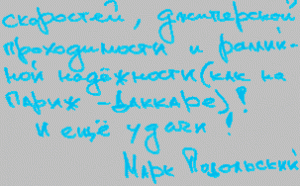 скоростей, джиперской
проходимости и раллий-
ной надёжности (как на
Париж - Даккаре)!
И ещё удачи!
Марк Подольский